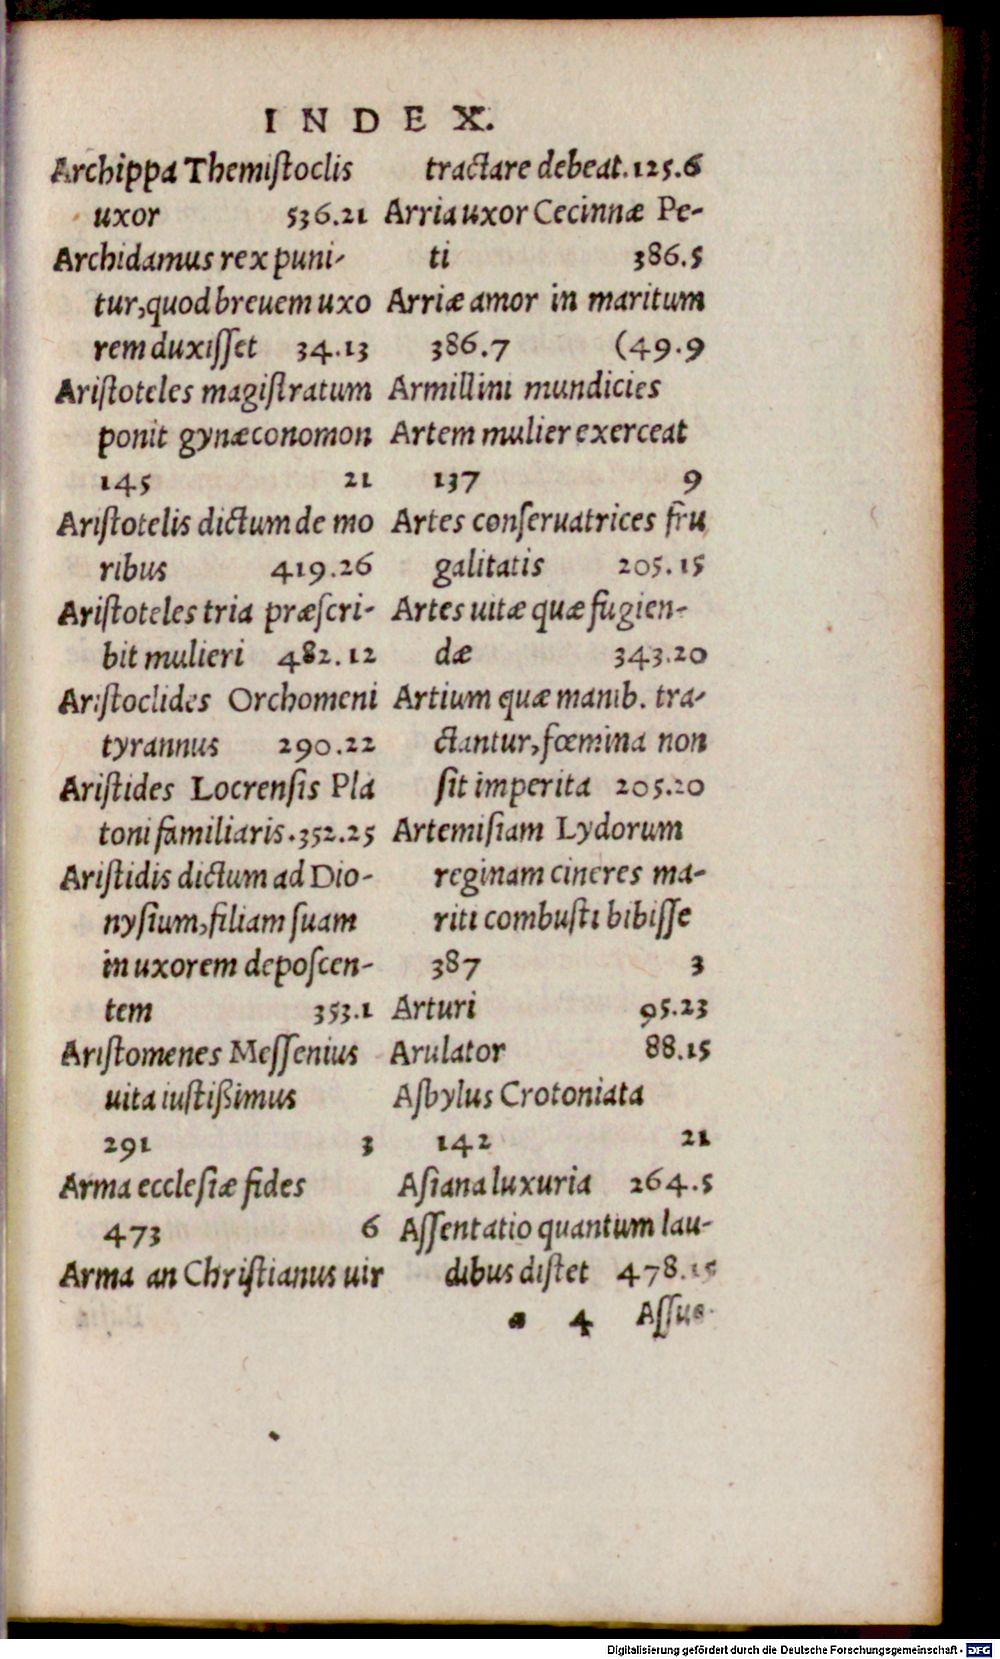 INDEX.
Archippa Themiſtoclis
uxor 536.21
Archidamus rex puni-
tur, quod breuem uxo
rem duxiſſet 34.13
Ariſtoteles magiſtratum
ponit gynæconomon
145 21
Ariſtotelis dictum de mo
ribus 419.26
Ariſtoteles tria præſcri-
bit mulieri 482.12
Ariſtoclides Orchomeni
tyrannus 290.22
Ariſtides Locrenſis Pla
toni familiaris. 352.25
Ariſtidis dictum ad Dio-
nyſium, filiam ſuam
in uxorem depoſcen-
tem 353.1
Ariſtomenes Meſſenius
uita iuſtißimus
291 3
Arma eccleſiæ fides
473 6
Arma an Chriſtianus uir
tractare debeat. 125.6
Arria uxor Cecinnæ Pe-
ti 386.5
Arriæ amor in maritum
386.7 (49.9
Armillini mundicies
Artem mulier exerceat
137 9
Artes conſeruatrices fru
galitatis 205.15
Artes uitæ quæ fugien-
dæ 343.20
Artium quæ manib. tra-
ctantur, fœmina non
ſit imperita 205.20
Artemiſiam Lydorum
reginam cineres ma-
riti combuſti bibiſſe
387 3
Arturi 95.23
Arulator 88.15
Aſbylus Crotoniata
142 21
Aſiana luxuria 264.5
Aſſentatio quantum lau-
dibus diſtet 478.15
a 4 Aſſue-
Digitalisierung gefördert durch die Deutsche Forschungsgemeinschaft - DFG